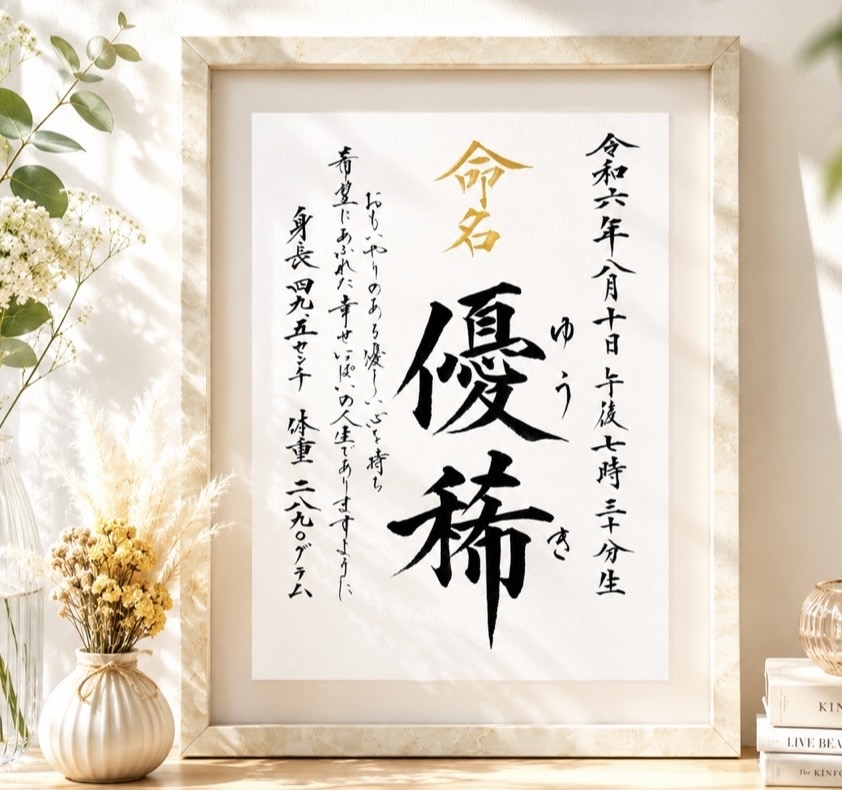 令和六年八月十日 午後七時三十分生
命名
優稀
ゆうき
おもいやりのある優しい心を持ち
希望にあふれた幸せいっぱいの人生でありますように
身長 四九.五センチ 体重 二八九〇グラム
KIN
LIVE BEA
The KINFO